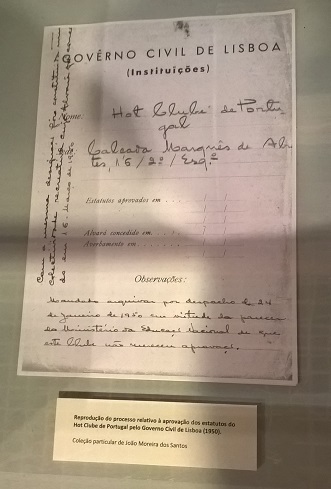 GOVÊRNO CIVIL DE LISBOA
(Instituïções)
Nome: Hot Clube de Portu-
gal
Calçada Marquês de Abran-
tes, 15/2º/Esqº
Estatutos aprovados em
Alvará concedido em
Averbamento em
Observações:
Mandado arquivar por despacho de 24
de Janeiro de 1950 em virtude do parecer
do Ministério da Educação Nacional de que
este Clube não mereceu aprovação.
Com a mesma designação foi constituída
em 16. Março de 1950
Reprodução do processo relativo à aprovação dos estatutos do
Hot Clube de Portugal pelo Governo Civil de Lisboa (1950).
Coleção particular de João Moreira dos Santos